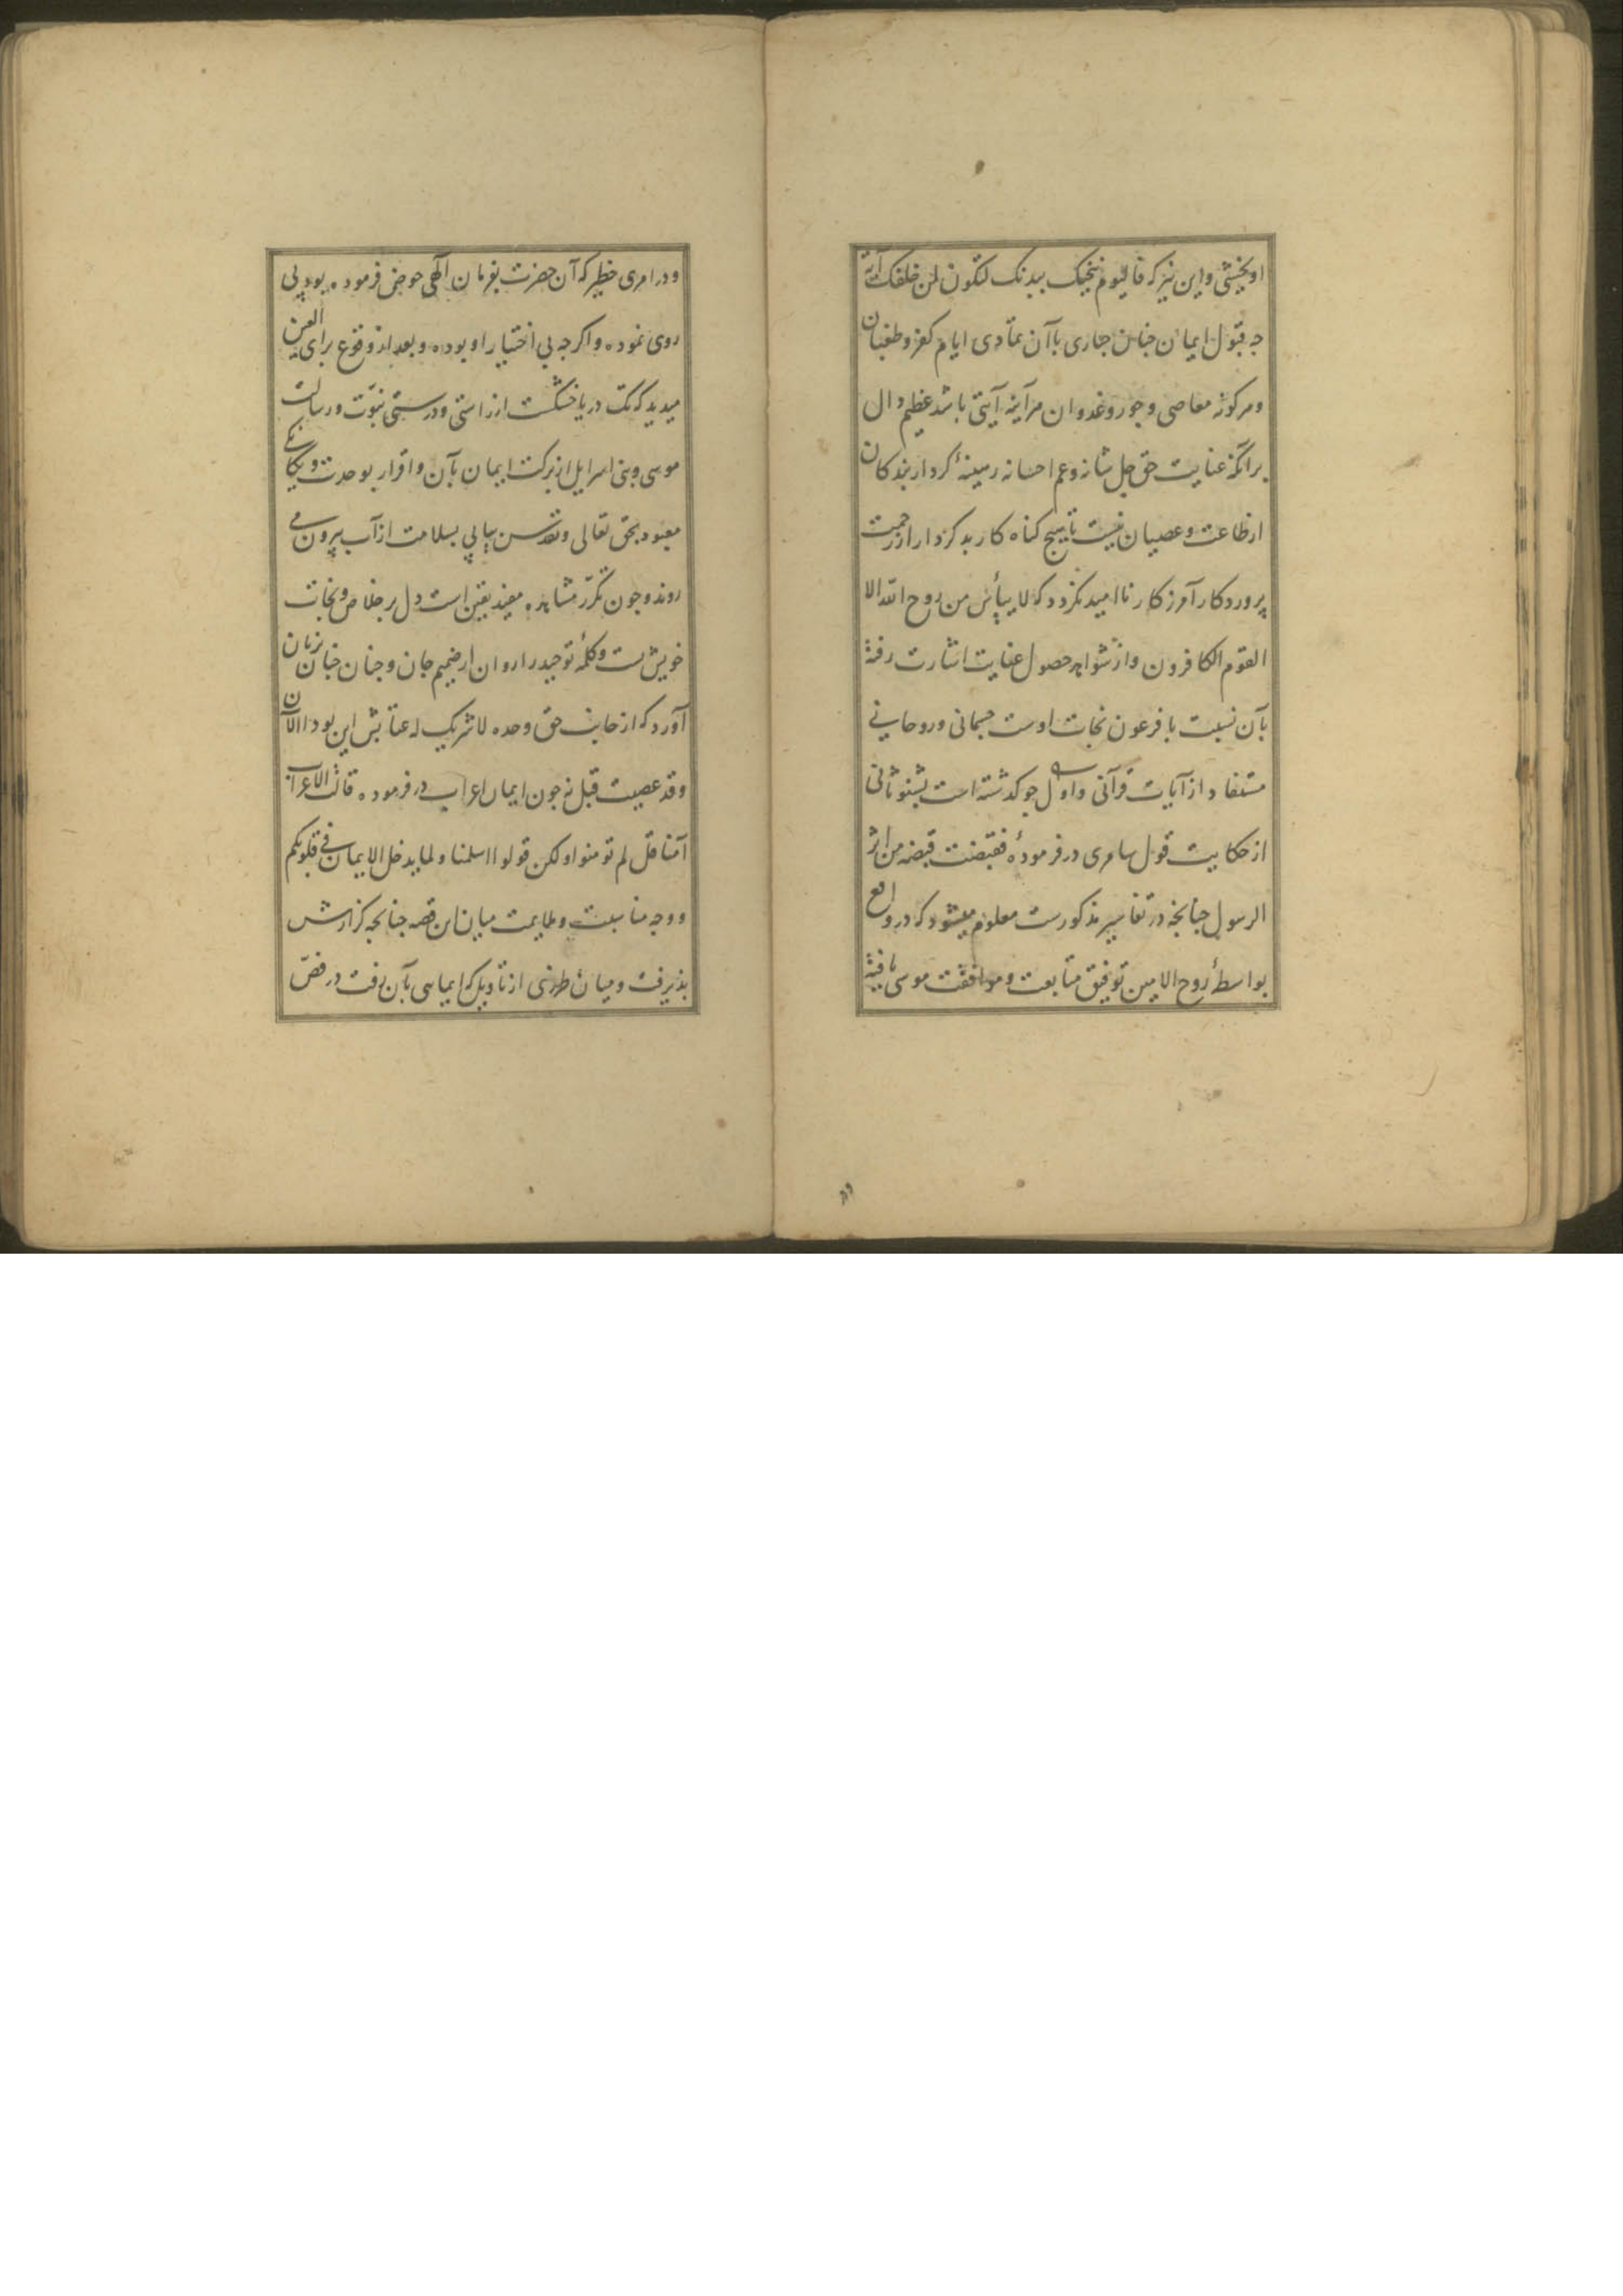 او بخشی و این نیز که فالیوم ننجیک ببدنک لتکون لمن خلفک آیة
جه قبول ایمان جنان جباری باآن تمادی ایام کفر و طغیان
و مرکونه معاصی و جور و عدوان مرآینه آیتی باشد عظیم دال
برانکه عنایت حق جل شانه و عم احسانه رمینهٔ کردار بندکان
ارطاعت و عصیان نیست تا هیج کناه کار بد کردار از رحمت
پروردکار آمرزکار ناامید نکردد که لا ییأس من روح الله الا
القوم الکافرون و از شواهد حصول عنایت اشارت رفته
بآن نسبت با فرعون نجات اوست جسمانی و روحانی
مستفاد از آیات قرآنی و اول جو کذشته است بشنو ثانی
از حکایت قول سامری در فرمودهٔ فقبضت قبضه من اثر
الرسول جنانجه در تفاسیر مذکورست معلوم میشود که در واقع
بواسطهٔ روح الامین توفیق متابعت و موافقت موسی یافته
و در امری خطیر که آن حضرت بفرمان آلهی خوض فرموده بود پی
روی نموده و اکرجه بی اختیار او بوده و بعد از وقوع برای العین
میدید که تک دریا خشکست از راستی و درستی نبوّت و رسالت
موسی و بنی اسرایل از برکت ایمان بآن و اقرار بوحدت و یکانکی
معبود بحق تعالی و تقدس پیاپی بسلامت از آب بیرون می
روند و جون تکرّر مشاهده مفید یقین است دل بر خلاص و نجات
خویش بست و کلمهٔ توحید را روان از ضمیم جان و جنان جنان بزبان
آورد که از جانب حق وحده لا شریک له عتابش این بود االآن
و قد عصیت قبل نه جون ایمان اعراب در فرموده قالت الاعراب
آمنا قل لم تومنوا و لکن قولوا اسلمنا و لما یدخل الایمان فی قلوبکم
و وجه مناسبت و ملایمت میان این قصه جنانجه کزارش
بذیرفت و میان طرفی از تأویل که ایمایی بآن رفت در فصّ